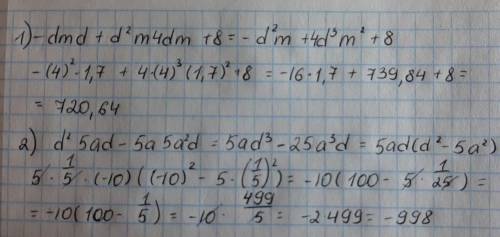 1) -dmd + d²m4dm + 8 = -d²m + 4d³m² + 8
-(4)²·1,7 + 4·(4)³(1,7)² + 8 = -16·1,7 + 739,84 + 8 =
= 720,64
2) d²5ad - 5a5a²d = 5ad³ - 25a³d = 5ad(d² - 5a²)
5·1/5·(-10)((-10)² - 5·(1/5)²) = -10(100 - 5·1/25) =
= -10(100 - 1/5) = -10·499/5 = -2499 = -998